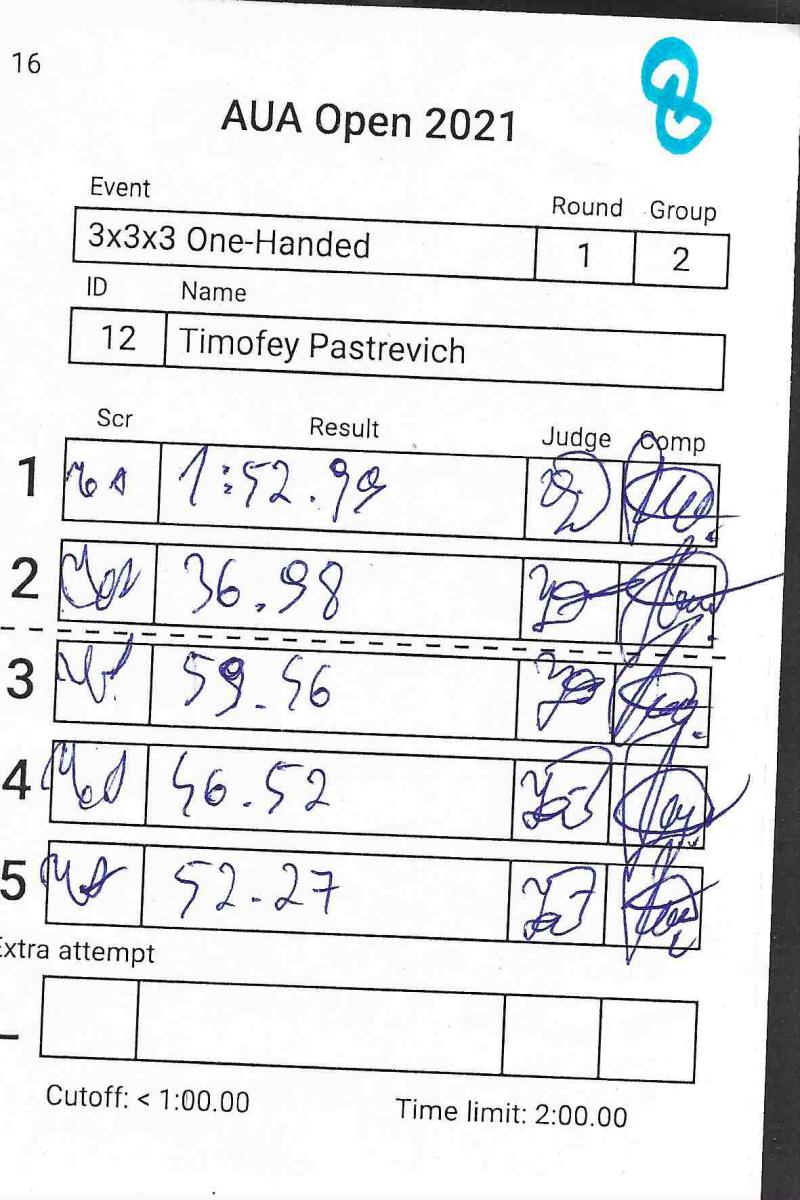 16
AUA Open 2021
Event Round Group
3x3x3 One-Handed 1 2
ID Name
12 Timofey Pastrevich
Scr Result Judge Comp
1 1:52.99
2 36.98
3 59.46
4 46.52
5 52.27
Extra attempt
Cutoff: < 1:00.00 Time limit: 2:00.00